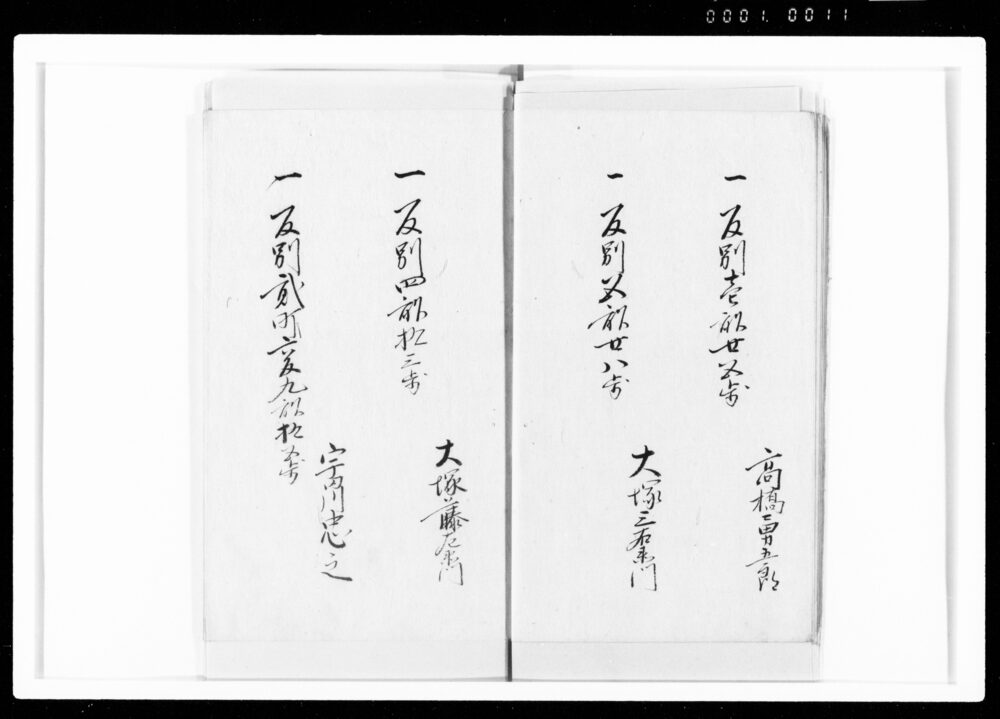 0001. 0011
一 反別壱畝廿五歩
高橋勇五郎
一 反別五畝廿八歩
大塚三右衛門
一 反別四畝拾三歩
大塚藤左衛門
一 反別弐町六反九畝拾五歩
宇内川忠之